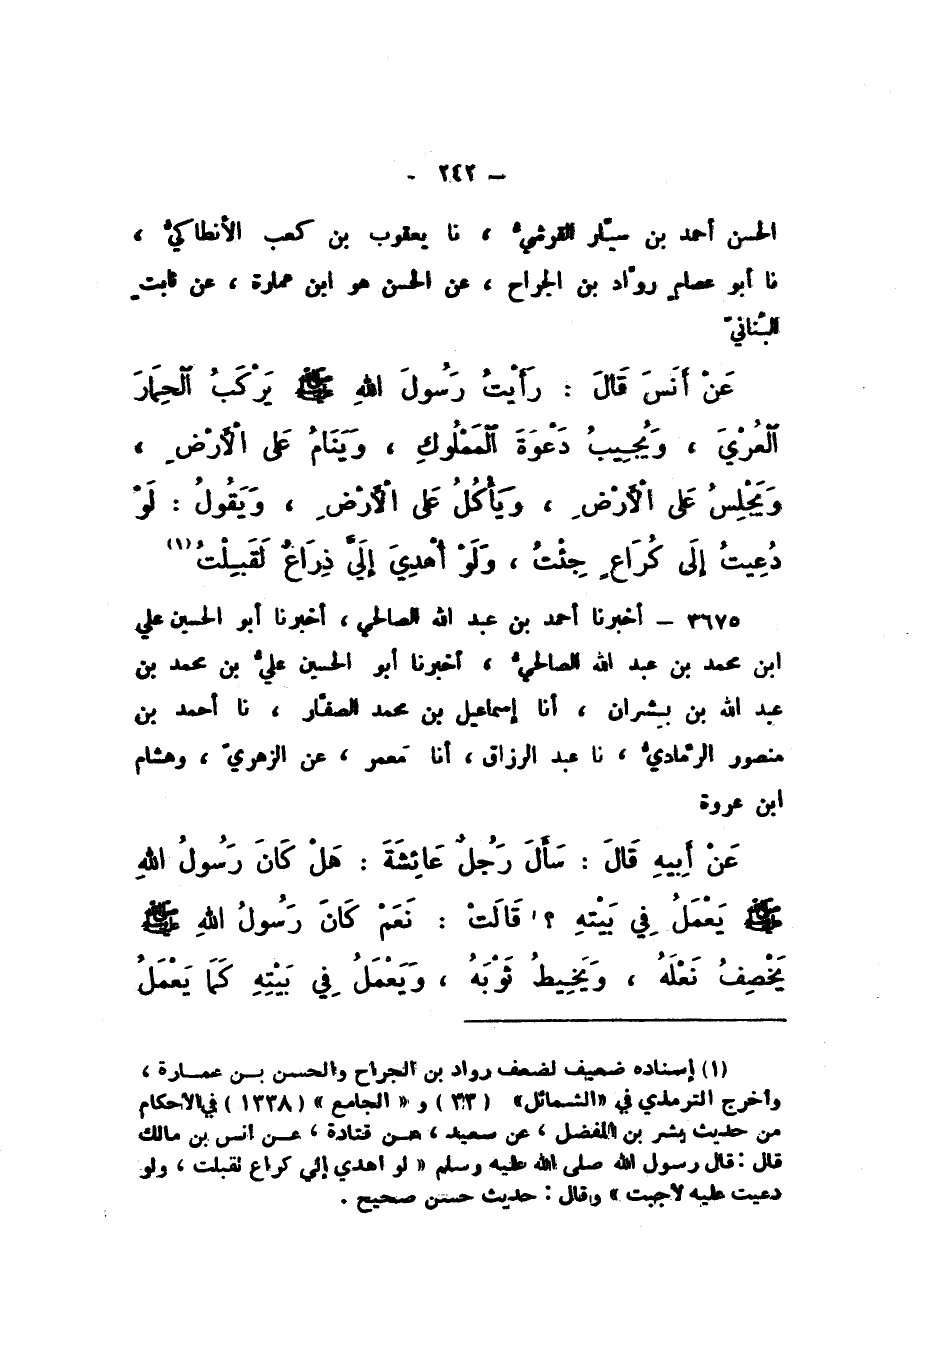 – ٢٤٢ -
الحسن أحمد بن سيّار القرشيُّ ، نا يعقوب بن كعب الأنطاكيُّ ،
نا أبو عصامٍ روّاد بن الجراح ، عن الحسن هو ابن عمارة ، عن ثابتٍ
البُنانيّ
عَنْ أَنَسَ قَالَ : رَأَيْتُ رَسُولَ اللهِ ﷺ يَرْكَبُ ٱلْحِمَارَ
ٱلْعُرْيَ ، وَيُجِيبُ دَعْوَةَ ٱلْمَمْلُوكِ ، وَيَنَامُ عَلَى الْأَرْضِ ،
وَيَجْلِسُ عَلَى الْأَرْضِ ، وَيَأْكُلُ عَلَى الْأَرْضِ ، وَيَقُولُ : لَوْ
دُعِيتُ إِلَى كُرَاعٍ جِئْتُ ، وَلَوْ أُهْدِيَ إِلَيَّ ذِرَاعٌ لَقَبِلْتُ (١)
٣٦٧٥ – أخبرنا أحمد بن عبد الله الصالحي ، أخبرنا أبو الحسين علي
ابن محمد بن عبد الله الصالحيُّ ، أخبرنا أبو الحسين عليُّ بن محمد بن
عبد الله بن بشران ، أنا إسماعيل بن محمد الصفّار ، نا أحمد بن
منصور الرّماديُّ ، نا عبد الرزاق ، أنا مَعمر ، عن الزهريّ ، وهشام
ابن عروة
عَنْ أَبِيهِ قَالَ : سَأَلَ رَجُلٌ عَائِشَةَ : هَلْ كَانَ رَسُولُ اللهِ
ﷺ يَعْمَلُ فِي بَيْتِهِ ؟ قَالَتْ : نَعَمْ كَانَ رَسُولُ اللهِ ﷺ
يَخْصِفُ نَعْلَهُ ، وَيَخِيطُ ثَوْبَهُ ، وَيَعْمَلُ فِي بَيْتِهِ كَمَا يَعْمَلُ
(١) إسناده ضعيف لضعف رواد بن الجراح والحسن بن عمارة ،
وأخرج الترمذي في «الشمائل» و « الجامع » ( ١٣٣٨ ) في الأحكام
من حديث بشر بن المفضل ، عن سعيد ، عن قتادة ، عن انس بن مالك
قال : قال رسول الله صلى الله عليه وسلم « لو أهدي إلي كراع لقبلت ، ولو
دعيت عليه لأجبت » وقال : حديث حسن صحيح .